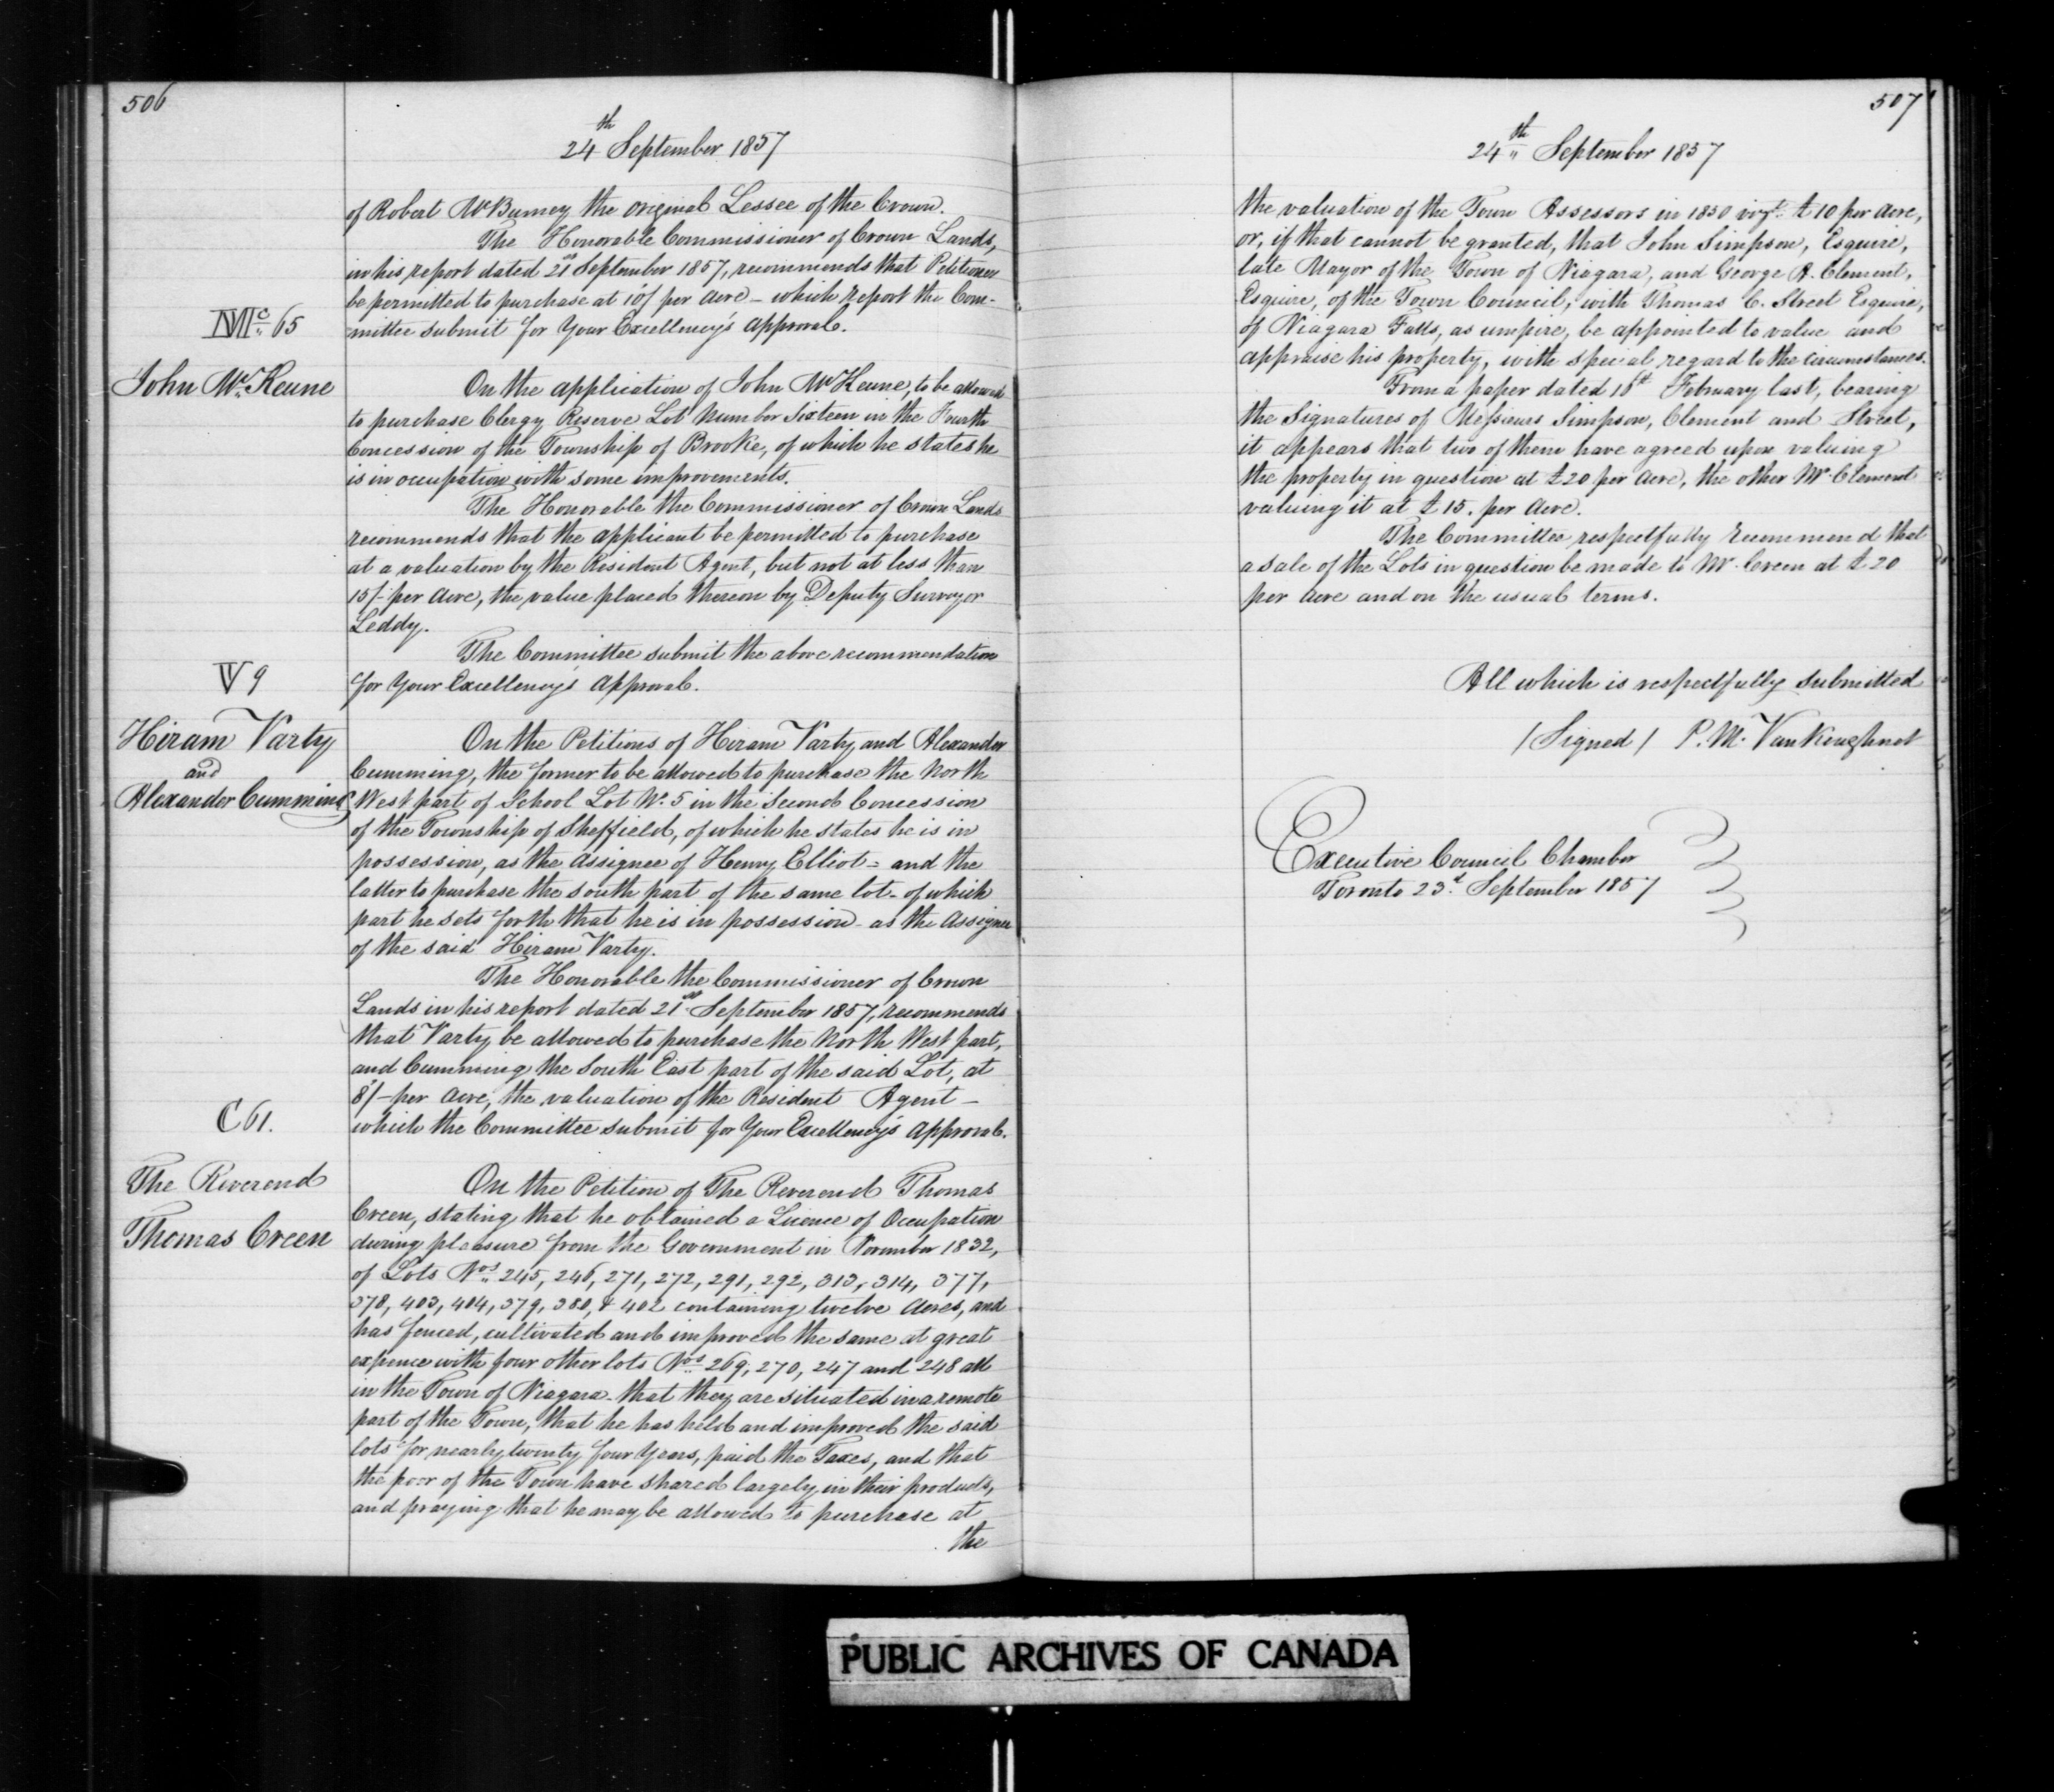 506
24th September 1857
of Robert McBurney the original Lessee of the Crown.
The Honorable Commissioner of Crown Lands,
in his report dated 21st September 1857, recommends that Petitioner
be permitted to purchase at 10/ per acre - which report the Com-
mittee submit for Your Excellency's approval.
Mc 65
John McKeune
On the application of John McKeune, to be allowed
to purchase Clergy Reserve Lot Number Sixteen in the Fourth
Concession of the Township of Brooke, of which he states he
is in occupation with some improvements.
The Honorable the Commissioner of Crown Lands
recommends that the applicant be permitted to purchase
at a valuation by the Resident Agent, but not at less than
15/- per acre, the value placed thereon by Deputy Surveyor
Leddy.
The Committee submit the above recommendation
for Your Excellency's approval.
V 9
Hiram Varty
and
Alexander Cumming
On the Petitions of Hiram Varty and Alexander
Cumming, the former to be allowed to purchase the North
West part of School Lot No. 5 in the Second Concession
of the Township of Sheffield, of which he states he is in
possession, as the assignee of Henry Elliot - and the
latter to purchase the south part of the same lot - of which
part he sets forth that he is in possession - as the Assignee
of the said Hiram Varty.
The Honorable the Commissioner of Crown
Lands in his report dated 21st September 1857, recommends
that Varty be allowed to purchase the North West part,
and Cumming the South East part of the said Lot, at
8/- per acre, the valuation of the Resident Agent -
which the Committee submit for Your Excellency's approval.
C 61.
The Reverend
Thomas Creen
On the Petition of The Reverend Thomas
Creen, stating that he obtained a Licence of Occupation
during pleasure from the Government in November 1832,
of Lots Nos. 245, 246, 271, 272, 291, 292, 313, 314, 377,
378, 403, 404, 379, 380, & 402 containing twelve acres, and
has fenced, cultivated and improved the same at great
expence with four other lots Nos. 269, 270, 247 and 248 all
in the Town of Niagara - that they are situated in a remote
part of the Town, that he has held and improved the said
lots for nearly twenty four Years, paid the Taxes, and that
the poor of the Town have shared largely in their products,
and praying that he may be allowed to purchase at
the
507
24th September 1857
the valuation of the Town Assessors in 1850 vizt. £10 per acre,
or, if that cannot be granted, that John Simpson, Esquire,
late Mayor of the Town of Niagara, and George A. Clement,
Esquire, of the Town Council, with Thomas C. Street Esquire,
of Niagara Falls, as umpire, be appointed to value and
appraise his property, with special regard to the circumstances.
From a paper dated 18th February last, bearing
the Signatures of Messieurs Simpson, Clement and Street,
it appears that two of them have agreed upon valuing
the property in question at £20 per acre, the other Mr. Clement
valuing it at £15. per acre.
The Committee respectfully recommend that
a sale of the Lots in question be made to Mr. Creen at £20
per acre and on the usual terms.
All which is respectfully submitted
(Signed) P. M. VanKoughnet
Executive Council Chamber
Toronto 23d. September 1857
PUBLIC ARCHIVES OF CANADA